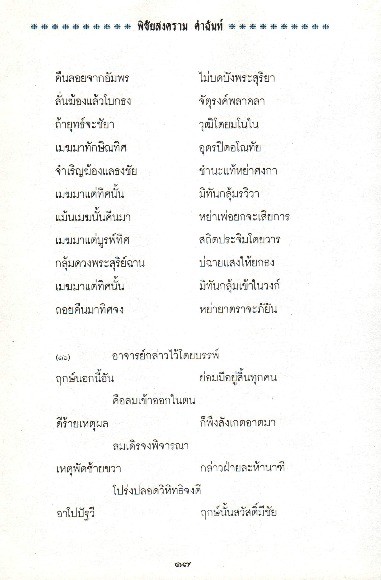 พิชัยสงคราม คำฉันท์
คืนลอยจากอัมพร ไม่บดบังพระสุริยา
ลั่นฆ้องแล้วโบกธง จัตุรงค์พลาคลา
ถ้ายุทธ์จะชัยา วุฒิโดยมโนใน
เมฆมาทักษิณทิศ อุดรปิดอโณทัย
จำเริญฆ้องแลธงชัย ชำนะแท้หย่าศงกา
เมฆมาแต่ทิศนั้น มิทันกลุ้มรวิวา
แม้นเมฆนั้นคืนมา หย่าเพ่อยกจะเสียการ
เมฆมาแต่บูรพ์ทิศ สถิตประจิมโดยวาร
กลุ้มดวงพระสุริย์ฉาน บ่ฉายแสงให้ยกธง
เมฆมาแต่ทิศนั้น มิทันกลุ้มเข้าในวงก์
ถอยคืนมาทิศจง หย่ายาตราจะภัยัน
(๑๖) อาจารย์กล่าวไว้โดยบรรพ์
ฤกษ์นอกนี้อัน ย่อมมีอยู่สิ้นทุกคน
คือลมเข้าออกในตน
ดีร้ายเหตุผล ก็พึงสังเกตอาตมา
ลมเดิรจงพิจารณา
เหตุพัดซ้ายขวา กล่าวฝ่ายละห้านาฑี
โปร่งปลอดวิหิทธิจงดี
อาโปปัฐวี ฤกษ์นั้นสวัสดิ์มีชัย
๑๗